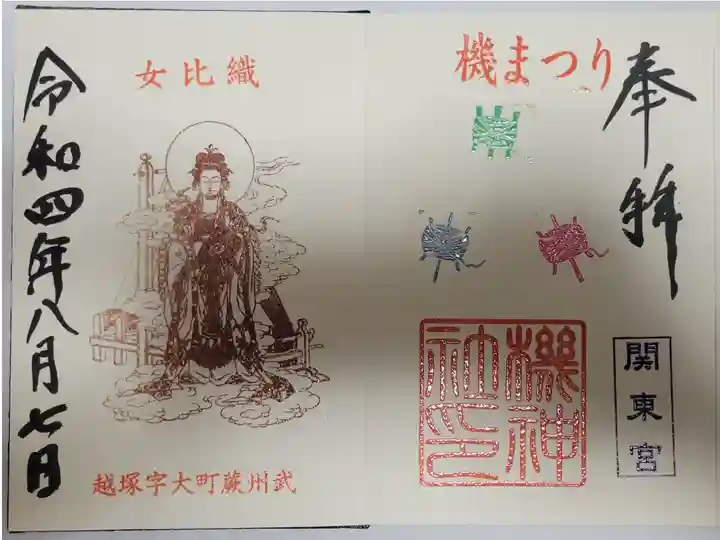 奉拝
機まつり
関東宮
機神社印
織比女
武州蕨町大字塚越
令和四年八月七日